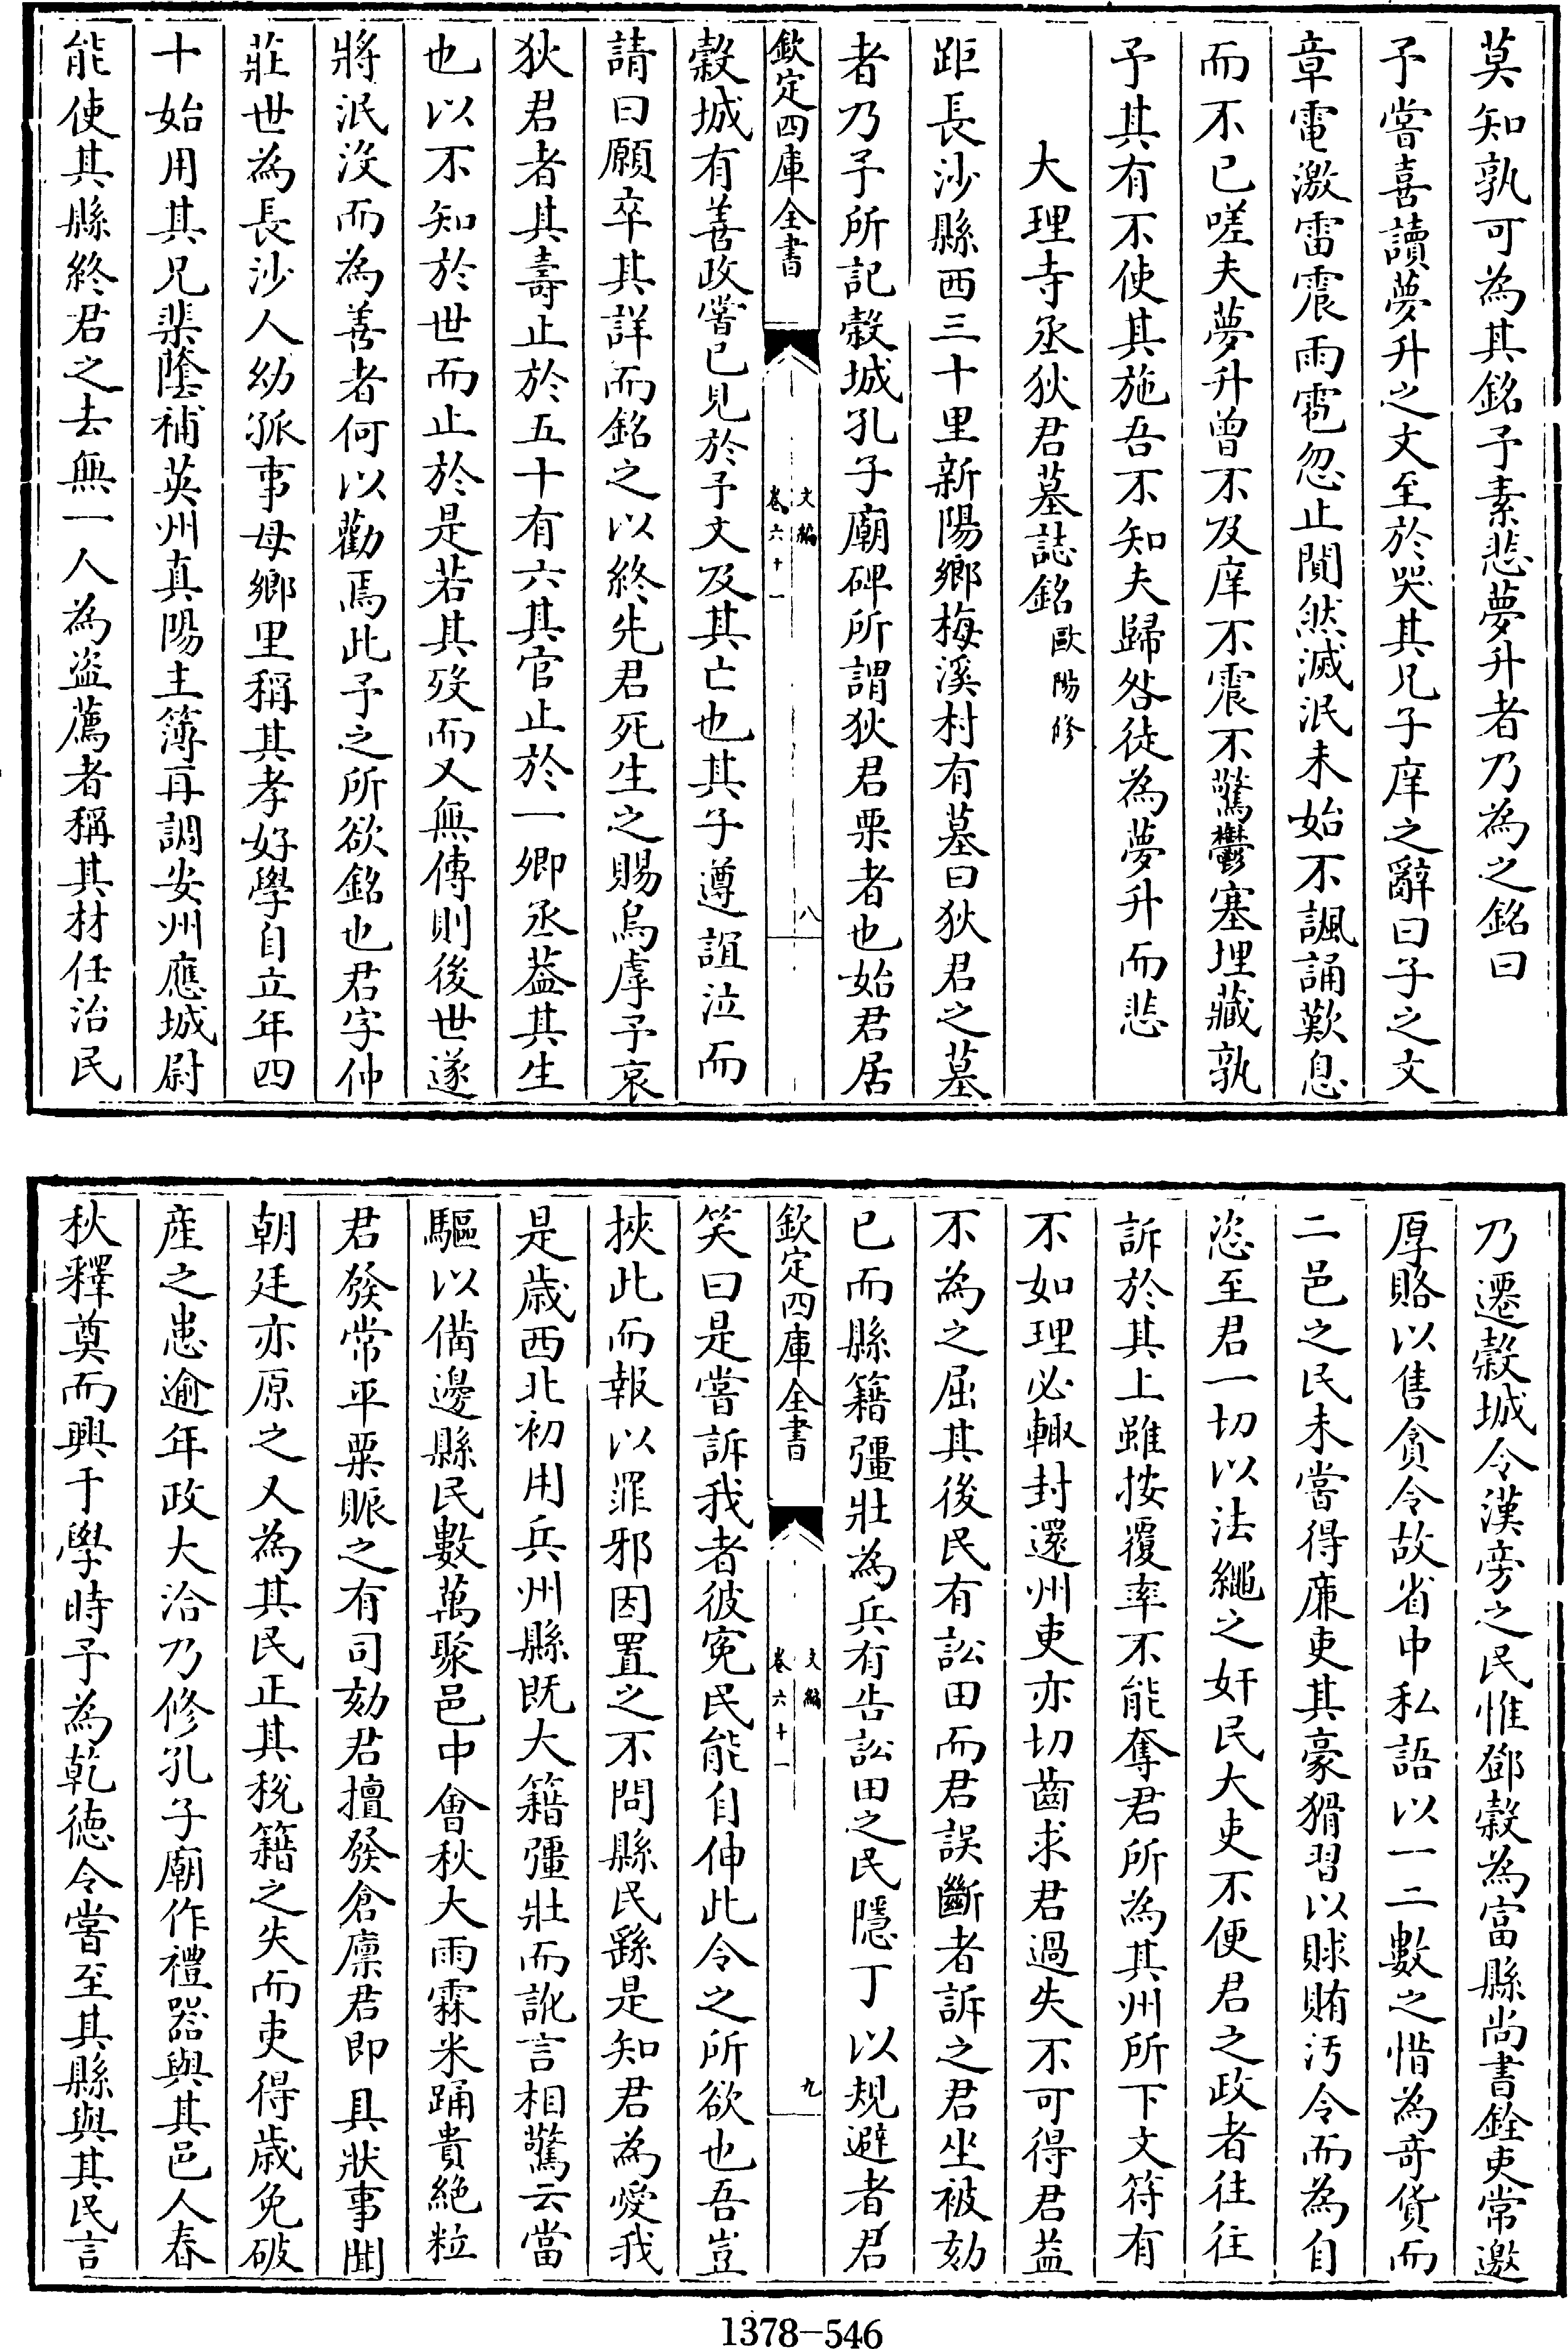 莫知孰可為其銘予素悲夢升者乃為之銘曰
予嘗喜讀夢升之文至於哭其兄子庠之辭曰子之文
章電激雷震雨雹忽止闃然滅泯未始不諷誦歎息
而不已嗟夫夢升曾不及庠不震不驚鬱塞埋藏孰
予其有不使其施吾不知夫歸咎徒為夢升而悲
大理寺丞狄君墓誌銘歐陽修
距長沙縣西三十里新陽鄉梅溪村有墓曰狄君之墓
者乃予所記穀城孔子廟碑所謂狄君栗者也始君居
欽定四庫全書
文編
卷六十一
八
穀城有善政嘗已見於予文及其亡也其子遵誼泣而
請曰願卒其詳而銘之以終先君死生之賜烏虖予哀
狄君者其壽止於五十有六其官止於一卿丞葢其生
也以不知於世而止於是若其歿而又無傳則後世遂
將泯沒而為善者何以勸焉此予之所欲銘也君字仲
莊世為長沙人幼孤事母鄉里稱其孝好學自立年四
十始用其兄棐蔭補英州真陽主簿再調安州應城尉
能使其縣終君之去無一人為盜薦者稱其材任治民
乃遷穀城令漢旁之民惟鄧穀為富縣尚書銓吏常邀
厚賂以售貪令故省中私語以一二數之惜為竒貨而
二邑之民未嘗得廉吏其豪猾習以賕賄汚令而為自
恣至君一切以法繩之奸民大吏不便君之政者往往
訴於其上雖按覆率不能奪君所為其州所下文符有
不如理必輙封還州吏亦切齒求君過失不可得君益
不為之屈其後民有訟田而君誤斷者訴之君坐被劾
已而縣籍彊壯為兵有告訟田之民隱丁以規避者君
欽定四庫全書
文編
卷六十一
九
笑曰是嘗訴我者彼寃民能自伸此令之所欲也吾豈
挾此而報以罪邪因置之不問縣民繇是知君為愛我
是歲西北初用兵州縣既大籍彊壯而訛言相驚云當
驅以備邊縣民數萬聚邑中會秋大雨霖米踊貴絶粒
君發常平粟賑之有司劾君擅發倉廩君即具狀事聞
朝廷亦原之又為其民正其稅籍之失而吏得歲免破
産之患逾年政大洽乃修孔子廟作禮器與其邑人春
秋釋奠而興于學時予為乾德令嘗至其縣與其民言
1378-546